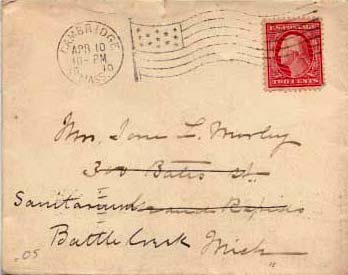 CAMBRIDGE
APR 10
10-PM
MASS.
U.S. POSTAGE
TWO CENTS
Mrs. Jane L.
300 Bates St.
Sanitarium Grand Rapids
Battle Creek Mich
.05